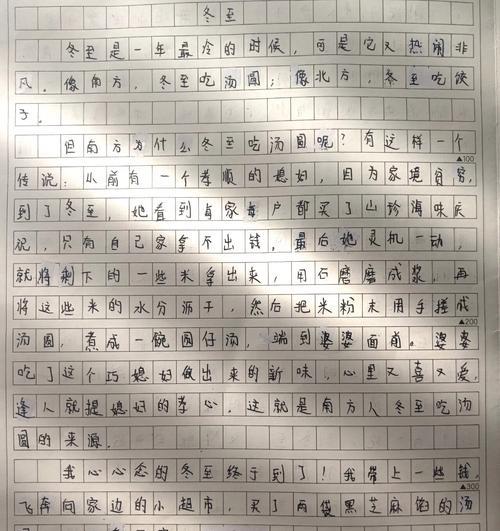 冬至
冬至是一年最冷的时候，可是它又热闹非
风。像南方，冬至吃汤圆；像北方，冬至吃饺
子。
但南方为什么冬至吃汤圆呢？有这样一个
▲100
传说：从前有一个孝顺的媳妇，因为家境贫穷，
到了冬至，她看到每家每户都买了山珍海味庆
祝，只有自己家拿不出钱，最后她灵机一动，
就将剩下的一些米拿出来，用石磨磨成浆，再
将这些米的水分沥干，然后把米粉末用手搓成
▲200
汤圆，煮成一碗圆仔汤，端到婆婆面前。婆婆
吃了这个巧媳妇做出来的新味，心里又喜又爱，
逢人就提媳妇的孝心。这就是南方人冬至吃汤
圆的来源。
我心心念的冬至终于到了！我带上一些钱，
▲300
飞奔向家边的小超市，买了两袋黑芝麻馅的汤